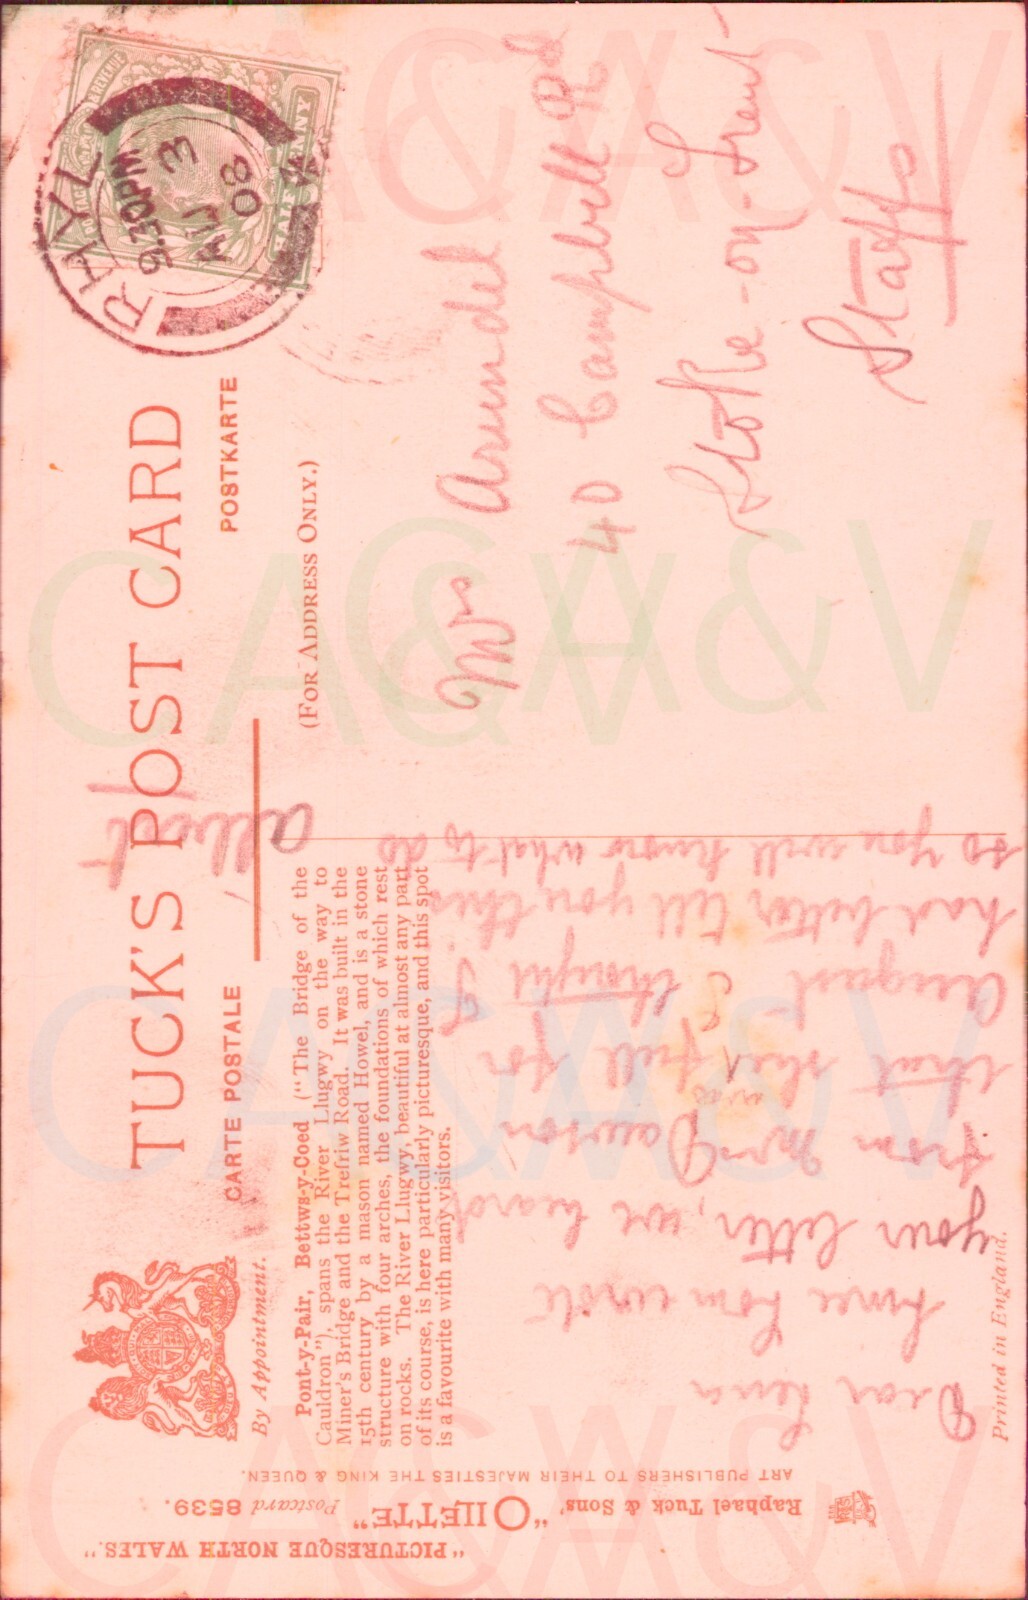 TUCK'S POST CARD
CARTE POSTALE
POSTKARTE
(FOR ADDRESS ONLY.)
By Appointment.
RHYL
9.30PM
AU 3
08
POSTAGE & REVENUE
HALF PENNY
Mrs Arundel
40 Campbell Rd
Stoke-on-Trent
Staffs
Pont-y-Pair, Bettws-y-Coed ("The Bridge of the
Cauldron"), spans the River Llugwy on the way to
Miner's Bridge and the Trefriw Road. It was built in the
15th century by a mason named Howel, and is a stone
structure with four arches, the foundations of which rest
on rocks. The River Llugwy, beautiful at almost any part
of its course, is here particularly picturesque, and this spot
is a favourite with many visitors.
"PICTURESQUE NORTH WALES."
Raphael Tuck & Sons' "OILETTE" Postcard 8539.
ART PUBLISHERS TO THEIR MAJESTIES THE KING & QUEEN.
Dear Lena
Since Tom wrote
your letter, we heard
from Mrs Dawson
that she was full for
August & thought I
had better tell you this
so you will know what to do
about it
Printed in England.
CA&V
CA&V
CA&V
CA&V
CA&V
CA&V
CA&V
CA&V